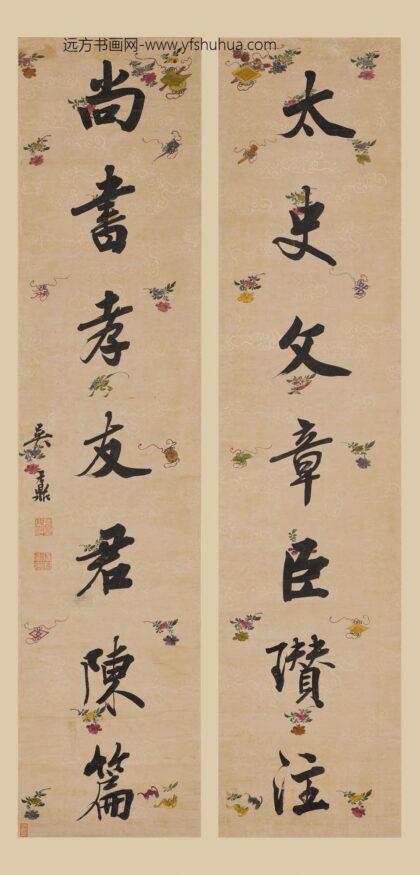 远方书画网-www.yfshuhua.com
太史文章臣瓒注
尚書孝友君陳篇
吴鼒